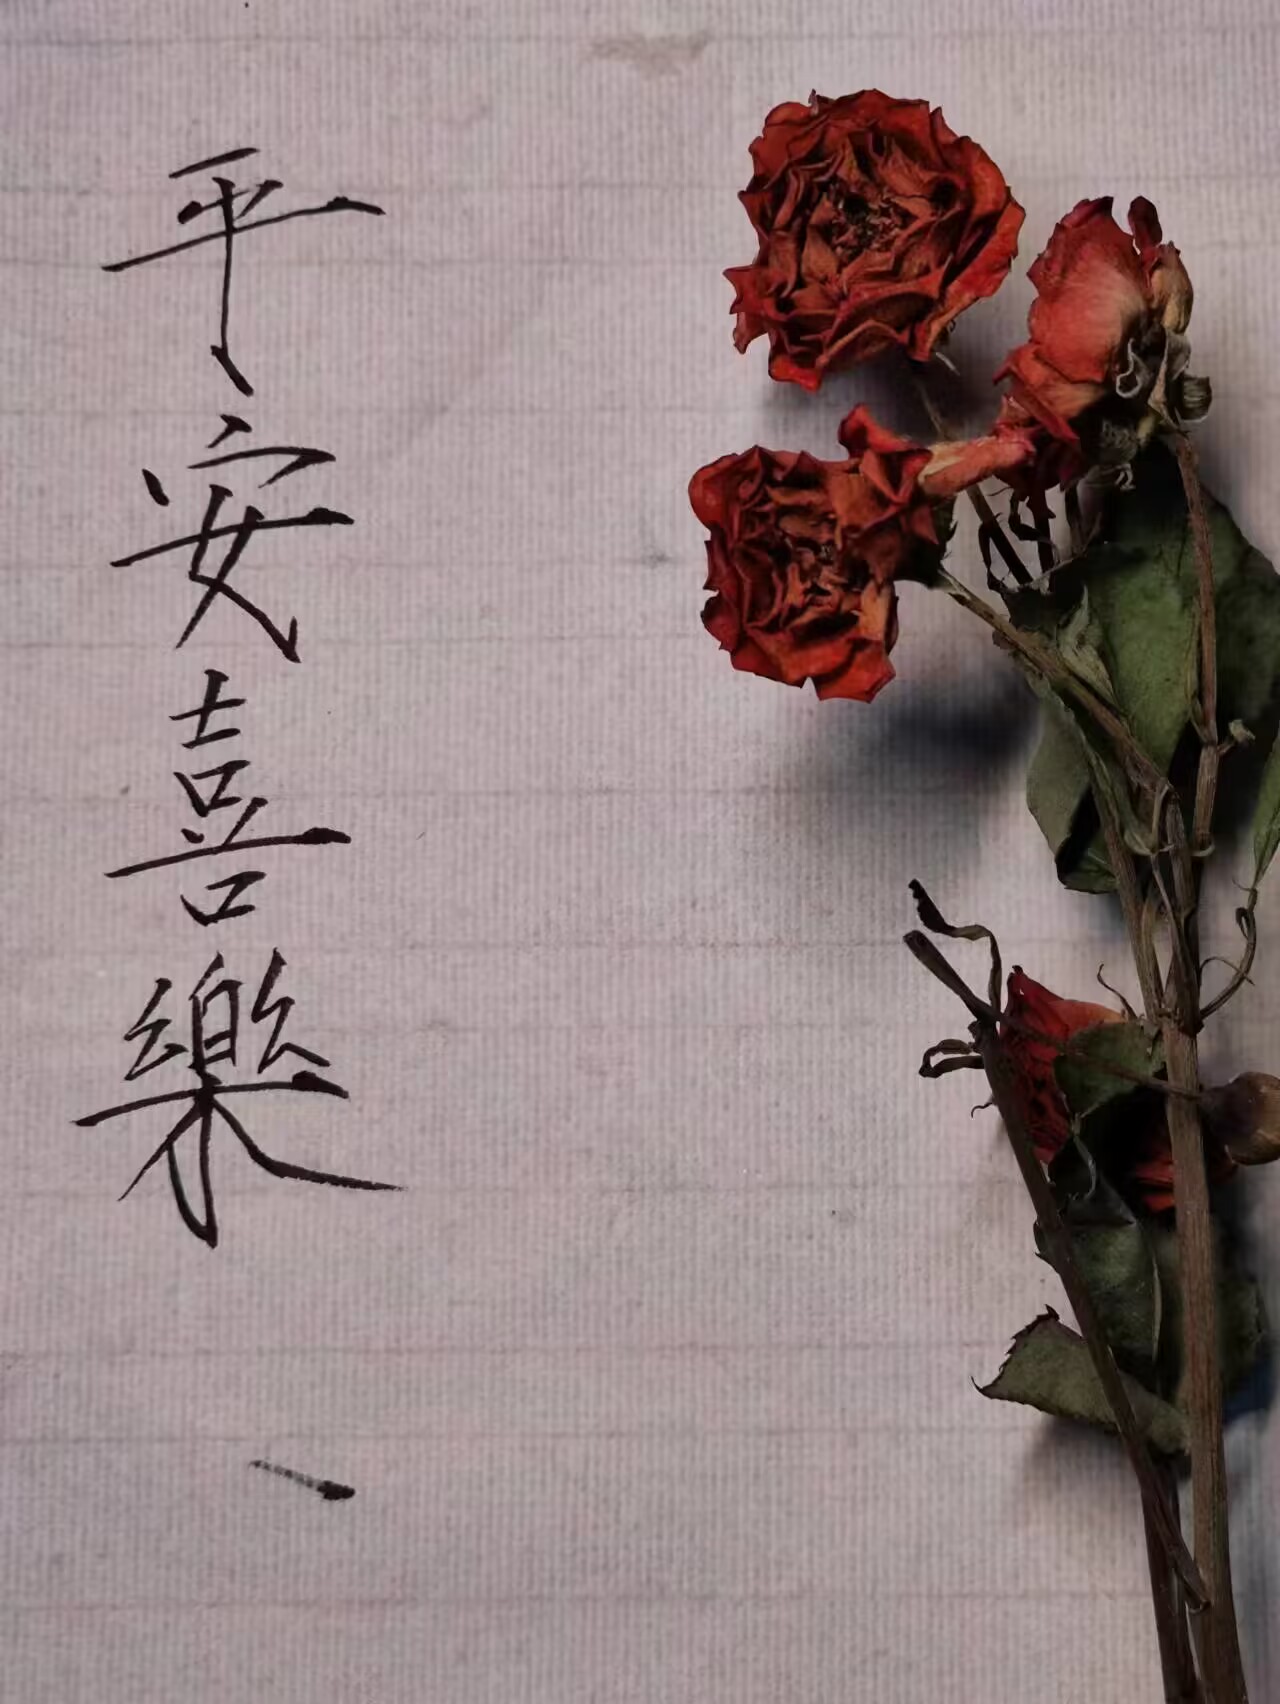 平安喜樂、